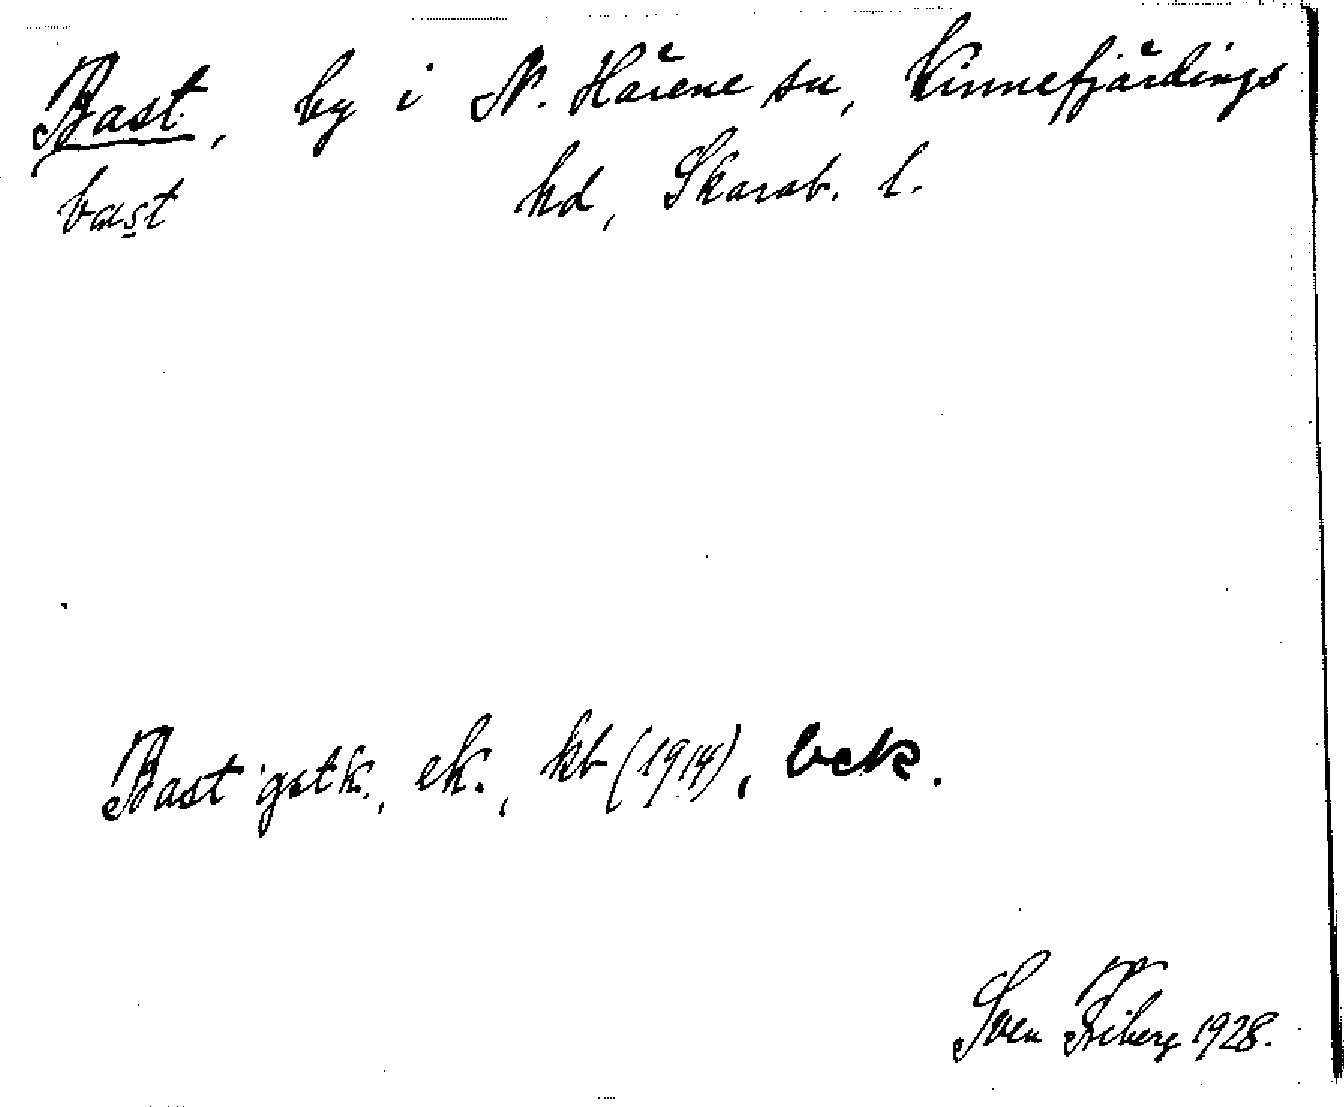 Bast, by i N. Härene sn, Kinnefjärdings
bast hd, Skarab. l.
Bast gstk., ek., kb (1914), bek.
Sven Friberg 1928.